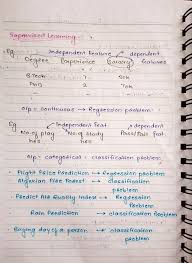 Supervised Learning :
Eg Independent Feature dependent
Degree Experience Salary features
B.Tech
PhD
o/p = continuous → Regression problem
Eg Independent Feat dependent
No. of play No. of study Pass/Fail
hrs hrs
o/p = categorical : classification problem
→ Flight Price Prediction → Regression problem
→ Algerian Fire Forest → classification
problem
→ Predict Air Quality Index → Regression
problem
→ Rain Prediction → classification problem
→ Buying day of a person → classification
problem